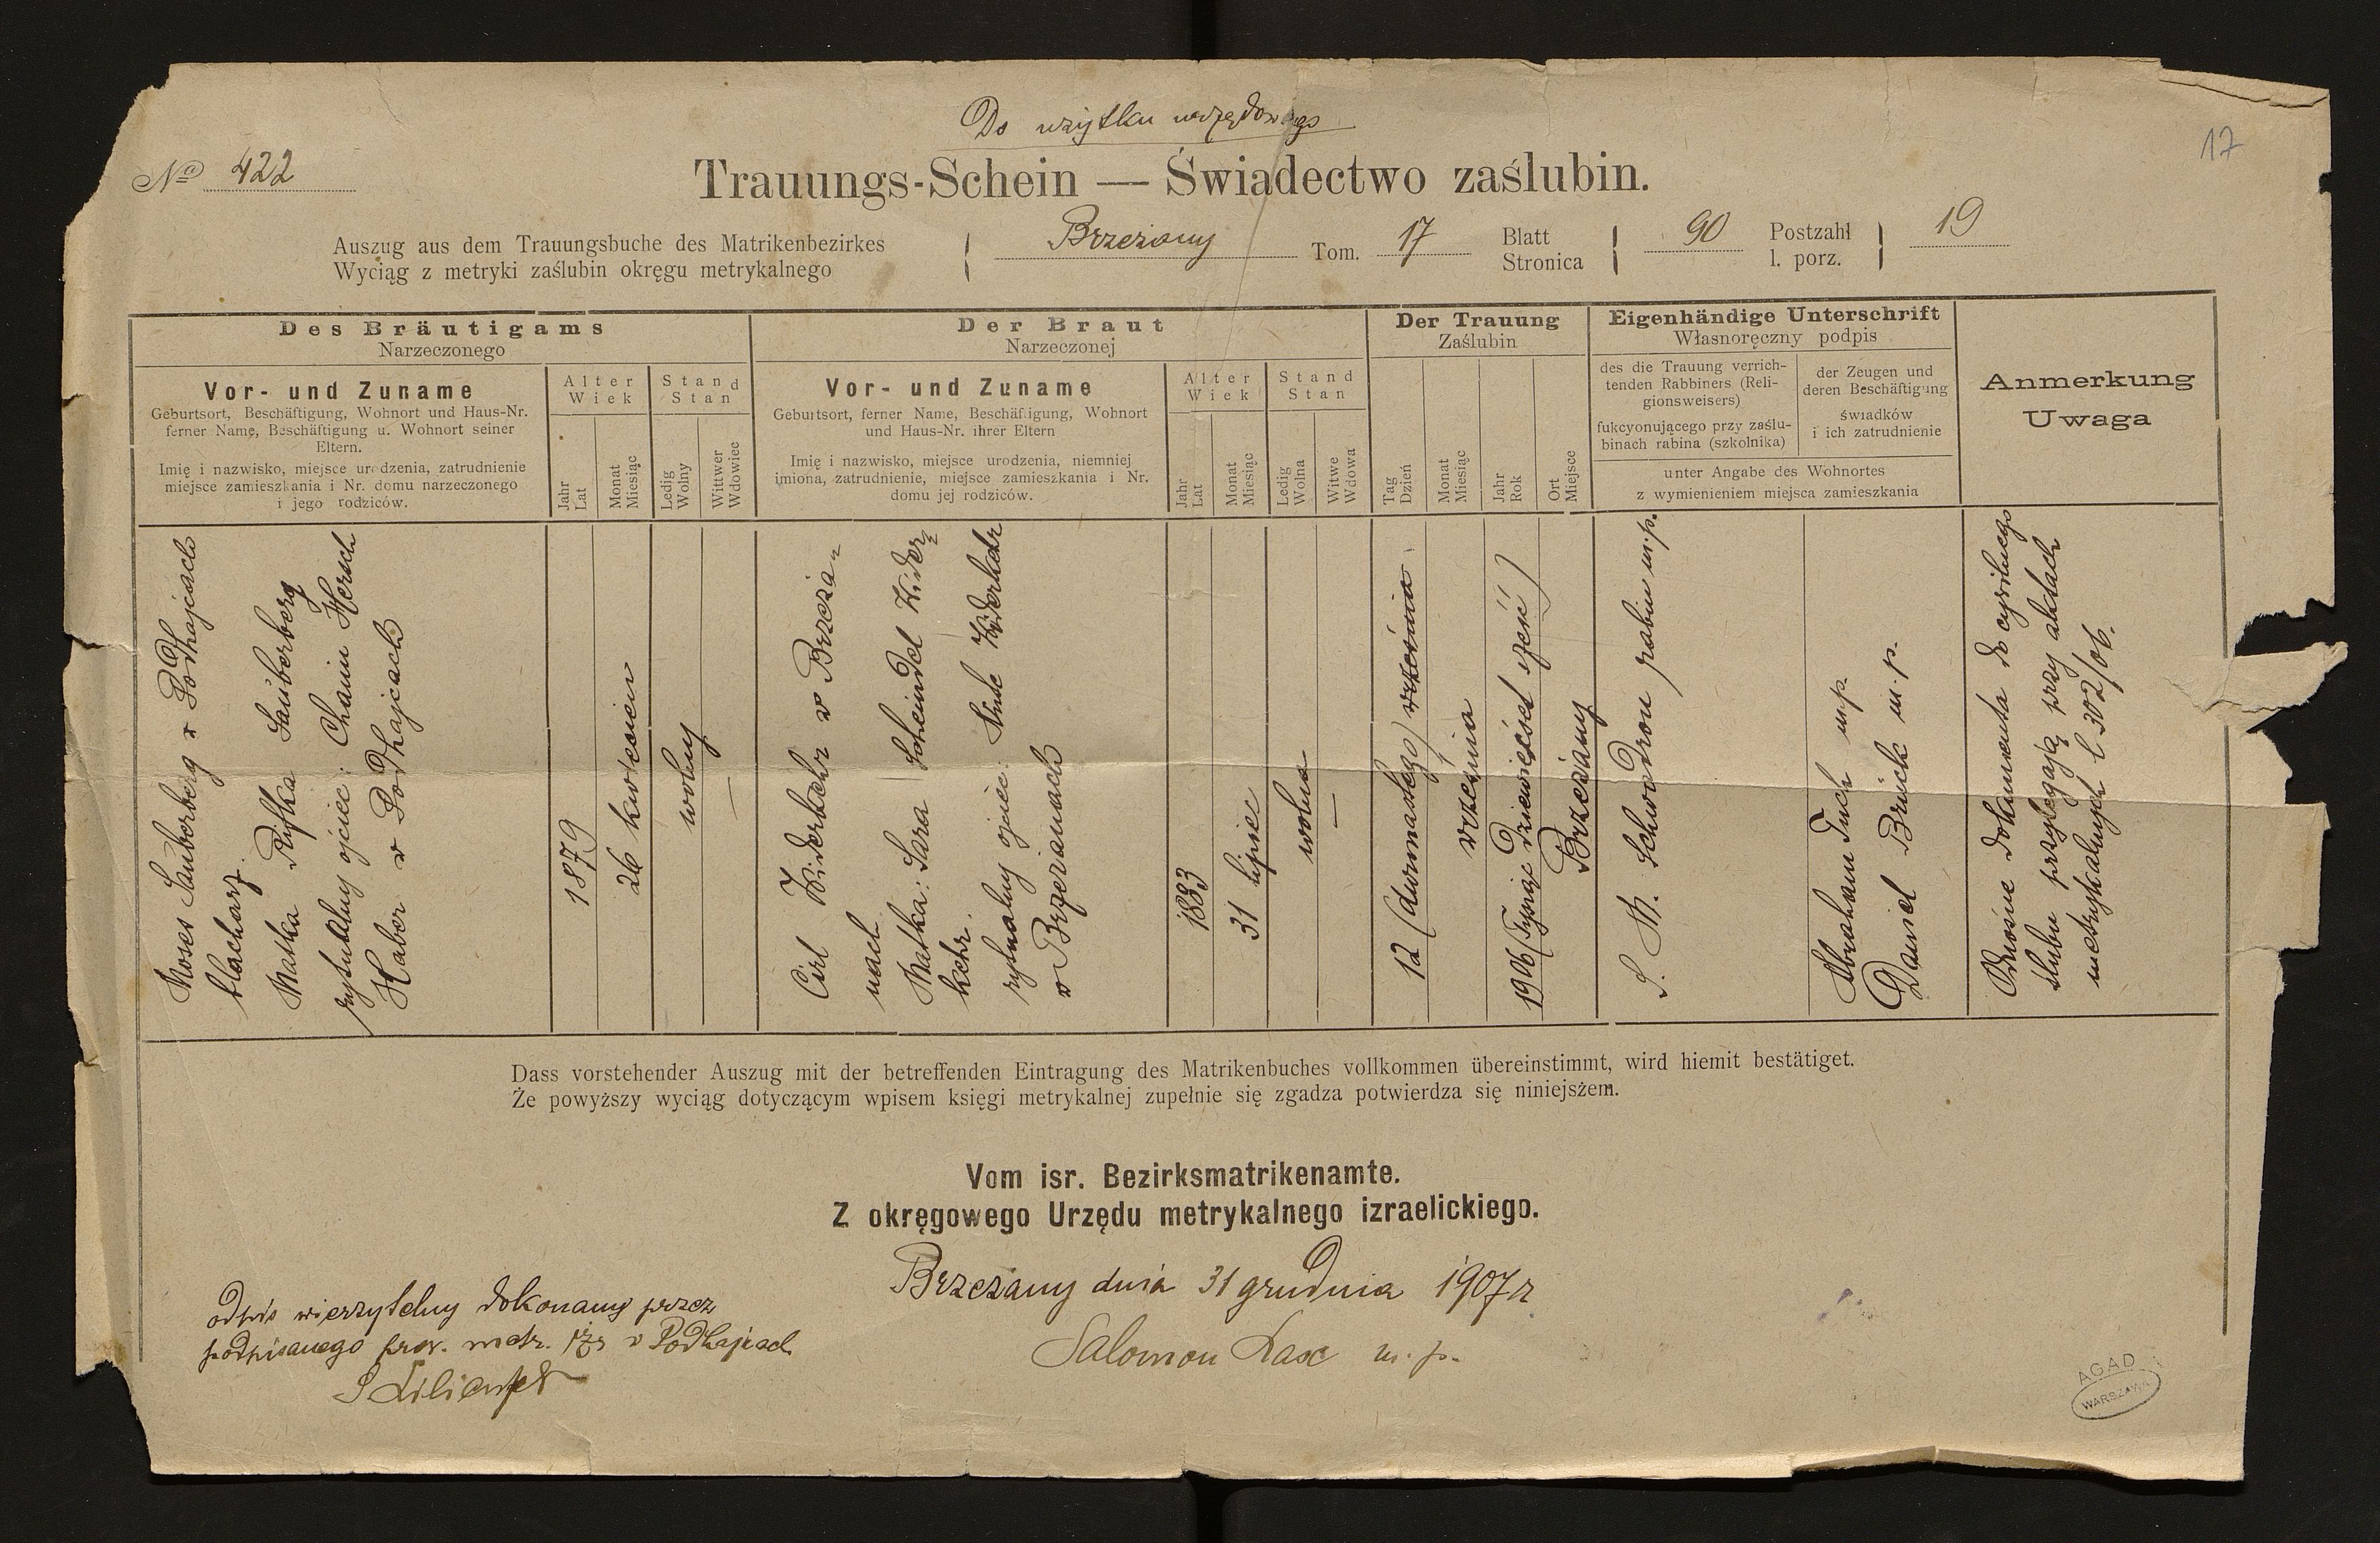 Do użytku urzędowego
17
No 422
Trauungs-Schein — Świadectwo zaślubin.
Auszug aus dem Trauungsbuche des Matrikenbezirkes
Wyciąg z metryki zaślubin okręgu metrykalnego
Brzeżany Tom. 17 Blatt Stronica 90 Postzahl l. porz. 19
Des Bräutigams
Narzeczonego
Vor- und Zuname
Geburtsort, Beschäftigung, Wohnort und Haus-Nr.
ferner Name, Beschäftigung u. Wohnort seiner
Eltern.
Imię i nazwisko, miejsce urodzenia, zatrudnienie
miejsce zamieszkania i Nr. domu narzeczonego
i jego rodziców.
Alter
Wiek
Jahr
Lat
Monat
Miesiąc
Stand
Stan
Ledig
Wolny
Wittwer
Wdowiec
Der Braut
Narzeczonej
Vor- und Zuname
Geburtsort, ferner Name, Beschäftigung, Wohnort
und Haus-Nr. ihrer Eltern
Imię i nazwisko, miejsce urodzenia, niemniej
imiona, zatrudnienie, miejsce zamieszkania i Nr.
domu jej rodziców.
Alter
Wiek
Jahr
Lat
Monat
Miesiąc
Stand
Stan
Ledig
Wolna
Witwe
Wdowa
Der Trauung
Zaślubin
Tag
Dzień
Monat
Miesiąc
Jahr
Rok
Ort
Miejsce
Eigenhändige Unterschrift
Własnoręczny podpis
des die Trauung verrich-
tenden Rabbiners (Reli-
gionsweisers)
fukcyonującego przy zaślu-
binach rabina (szkolnika)
der Zeugen und
deren Beschäftigung
świadków
i ich zatrudnienie
unter Angabe des Wohnortes
z wymienieniem miejsca zamieszkania
Anmerkung
Uwaga
Moses Sauberberg w Podhajcach
blacharz.
Matka Rifka Sauberberg
rytualny ojciec: Chaim Hersch
Haber w Podhajcach
1879
26 kwiecień
wolny
—
Cirl Widerkehr w Brzeża-
nach
Matka: Sara Scheindel Wider-
kehr.
rytualny ojciec: Widerkehr
w Brzeżanach
1883
31 lipiec
wolna
—
12 (dwunastego) września
września
1906 (Tysiąc dziewięćset sześć)
Brzeżany
S. M. Schwadron rabin m.p.
Abraham Tuch m.p.
Daniel Brück m.p.
Odnośne dokumenta do cywilnego
ślubu przylegają przy aktach
metrykalnych l 302/06.
Dass vorstehender Auszug mit der betreffenden Eintragung des Matrikenbuches vollkommen übereinstimmt, wird hiemit bestätiget.
Że powyższy wyciąg dotyczącym wpisem księgi metrykalnej zupełnie się zgadza potwierdza się niniejszem.
Vom isr. Bezirksmatrikenamte.
Z okręgowego Urzędu metrykalnego izraelickiego.
Brzeżany dnia 31 grudnia 1907 r.
Salomon Lax m.p.
odpis wierzytelny dokonany przez
podpisanego prow. metr. izr w Podhajcach
AGAD
WARSZAWA